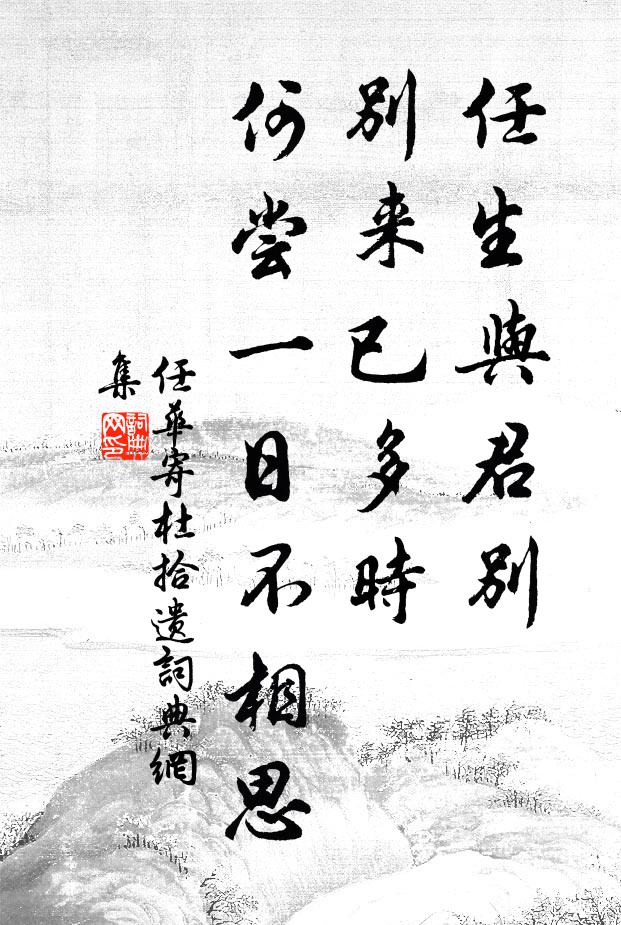 任生與君別
別来已多時
何嘗一日不相思
任華寄杜拾遺詞典網
集
詞典
网印